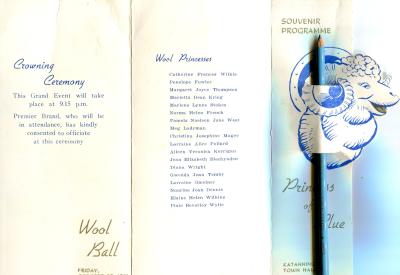 Crowning
Ceremony
This Grand Event will take
place at 9.15 p.m.
Premier Brand, who will be
in attendance, has kindly
consented to officiate
at this ceremony
Wool
Ball
FRIDAY,
Wool Princesses
Catherine Frances Wilkie
Penelope Fowler
Margaret Joyce Thompson
Marietta Dean Krieg
Marlene Lynne Stokes
Norma Helen French
Pamela Neilsen June West
Meg Ladyman
Christina Josephine Mager
Lorraine Alice Pollard
Aileen Veronica Kerrigan
Joan Elizabeth Blechynden
Diana Wright
Gwenda Joan Tomby
Lorraine Gmeiner
Noreen Joan Dennis
Elaine Helen Wilkins
Dixie Beverley Wylie
SOUVENIR
PROGRAMME
Princess
of
Blue
KATANNING
TOWN HALL